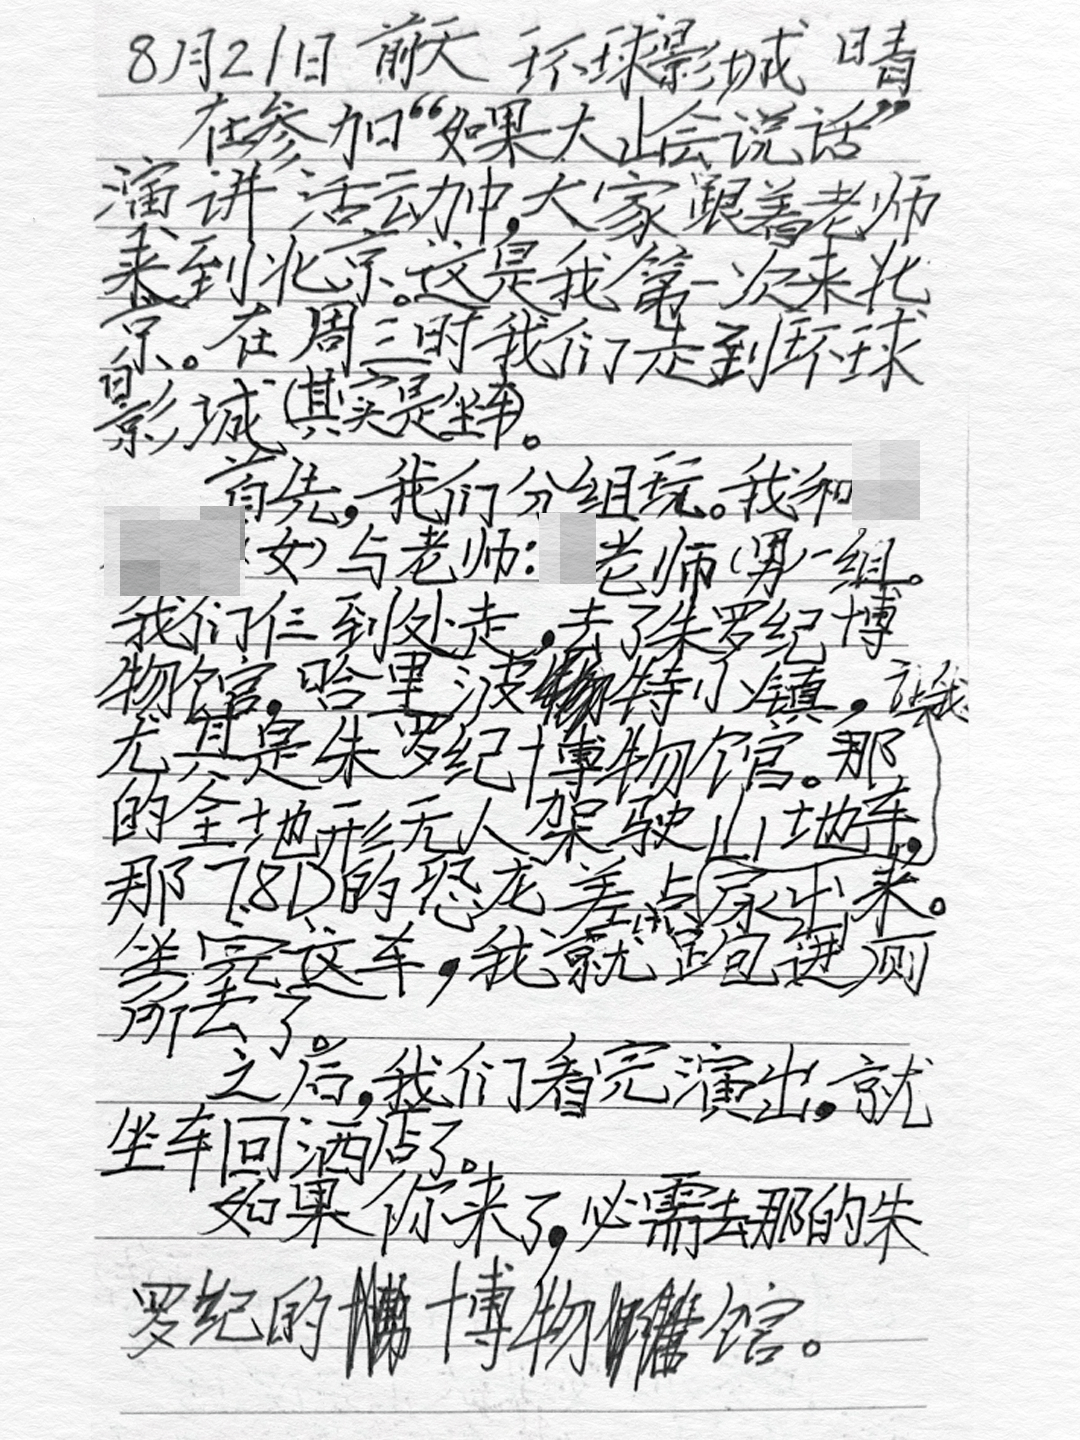 8月21日 前天 环球影城 晴
在参加“如果大山会说话”
演讲活动中,大家跟着老师
来到北京。这是我第一次来北
京。在周三时我们走到环球
影城(其实是坐车)。
首先,我们分组玩。我和
(女)与老师:老师(男)一组。
我们仨到处走,去了朱罗纪博
物馆,哈里波特小镇,让我
尤其是朱罗纪博物馆。那
的全地形无人驾驶山地车,
那78D的恐龙差点尿出来。
坐完这车,我就跑进厕
所去了。
之后,我们看完演出,就
坐车回酒店了。
如果你来了,必需去那的朱
罗纪的博物馆。